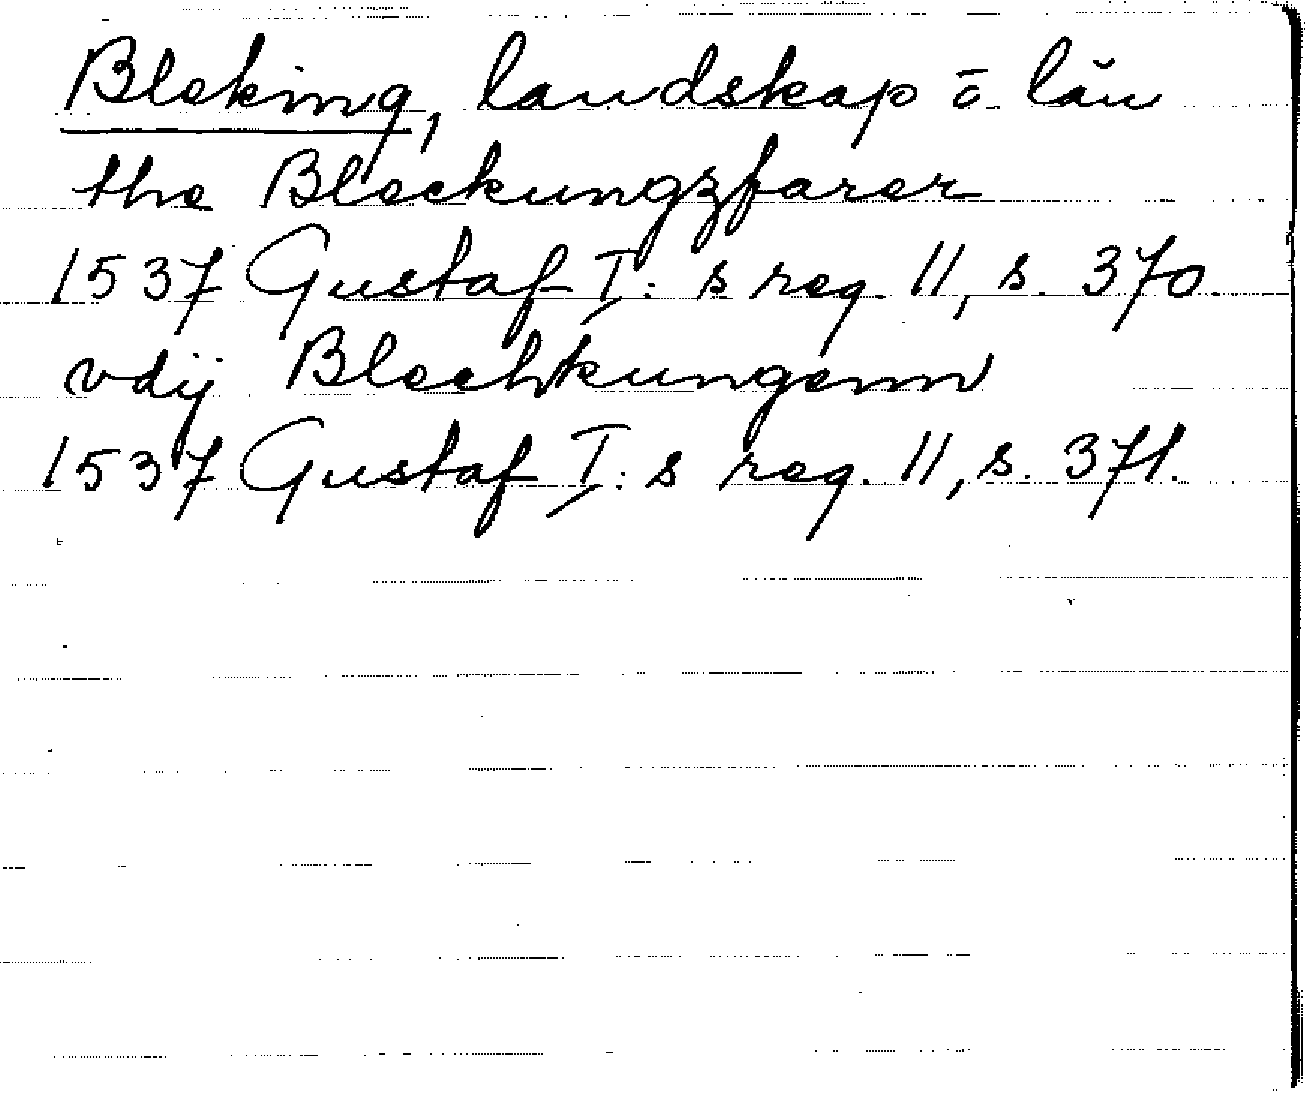 Bleking, landskap o. län
the Bleckungzfarer
1537 Gustaf I: s reg. 11, s. 370.
vdij Blechkungenn
1537 Gustaf I: s reg. 11, s. 371.